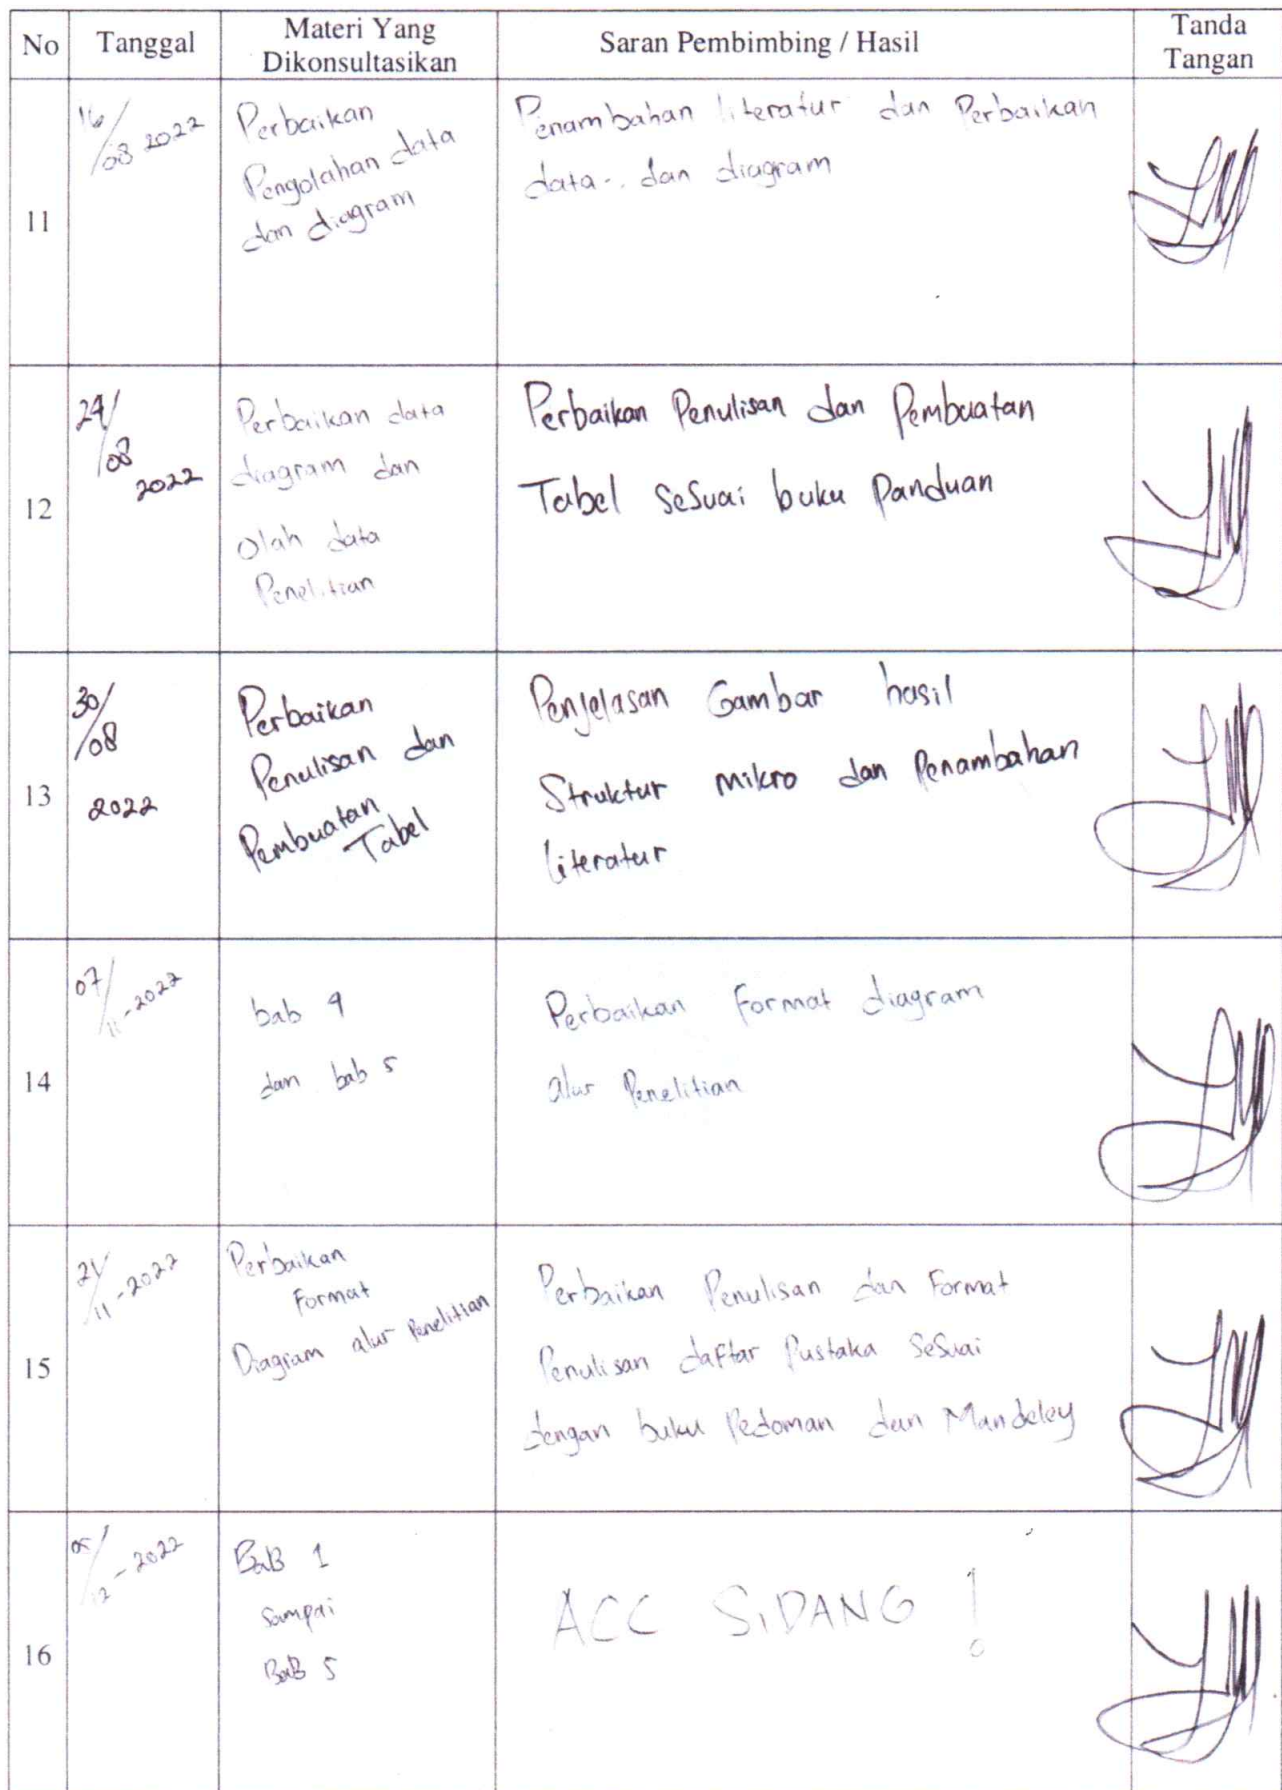 No Tanggal Materi Yang Dikonsultasikan Saran Pembimbing / Hasil Tanda Tangan
11
16/08 2022
Perbaikan
Pengolahan data
dan diagram
Penambahan literatur dan Perbaikan
data - dan diagram
12
24/08 2022
Perbaikan data
diagram dan
olah data
Penelitian
Perbaikan Penulisan dan Pembuatan
Tabel sesuai buku Panduan
13
30/08
2022
Perbaikan
Penulisan dan
Pembuatan
Tabel
Penjelasan Gambar hasil
Struktur mikro dan Penambahan
literatur
14
07/11-2022
bab 4
dan bab 5
Perbaikan Format diagram
alur Penelitian
15
21/11-2022
Perbaikan
Format
Diagram alur Penelitian
Perbaikan Penulisan dan Format
Penulisan daftar Pustaka Sesuai
dengan buku Pedoman dan Mandeley
16
05/12-2022
BaB 1
Sampai
BaB 5
ACC SIDANG !